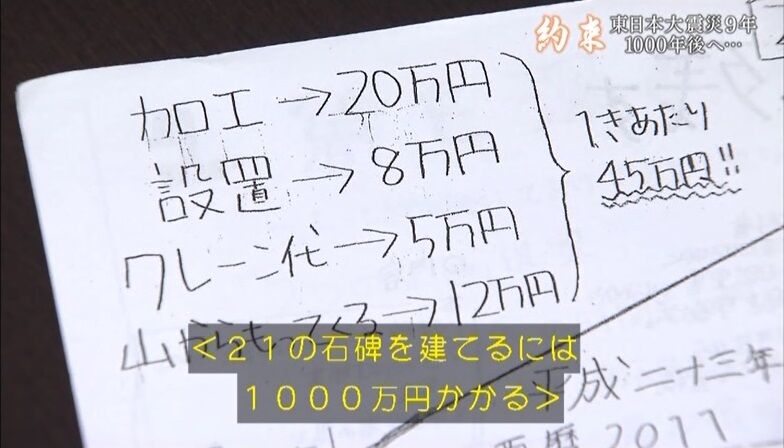 約束
東日本大震災9年
1000年後へ…
加工→20万円
設置→8万円
クレーン代→5万円
山からもってくる→12万円
1きあたり
45万円!!
<21の石碑を建てるには
1000万円かかる>
平成二十三年
西暦2011